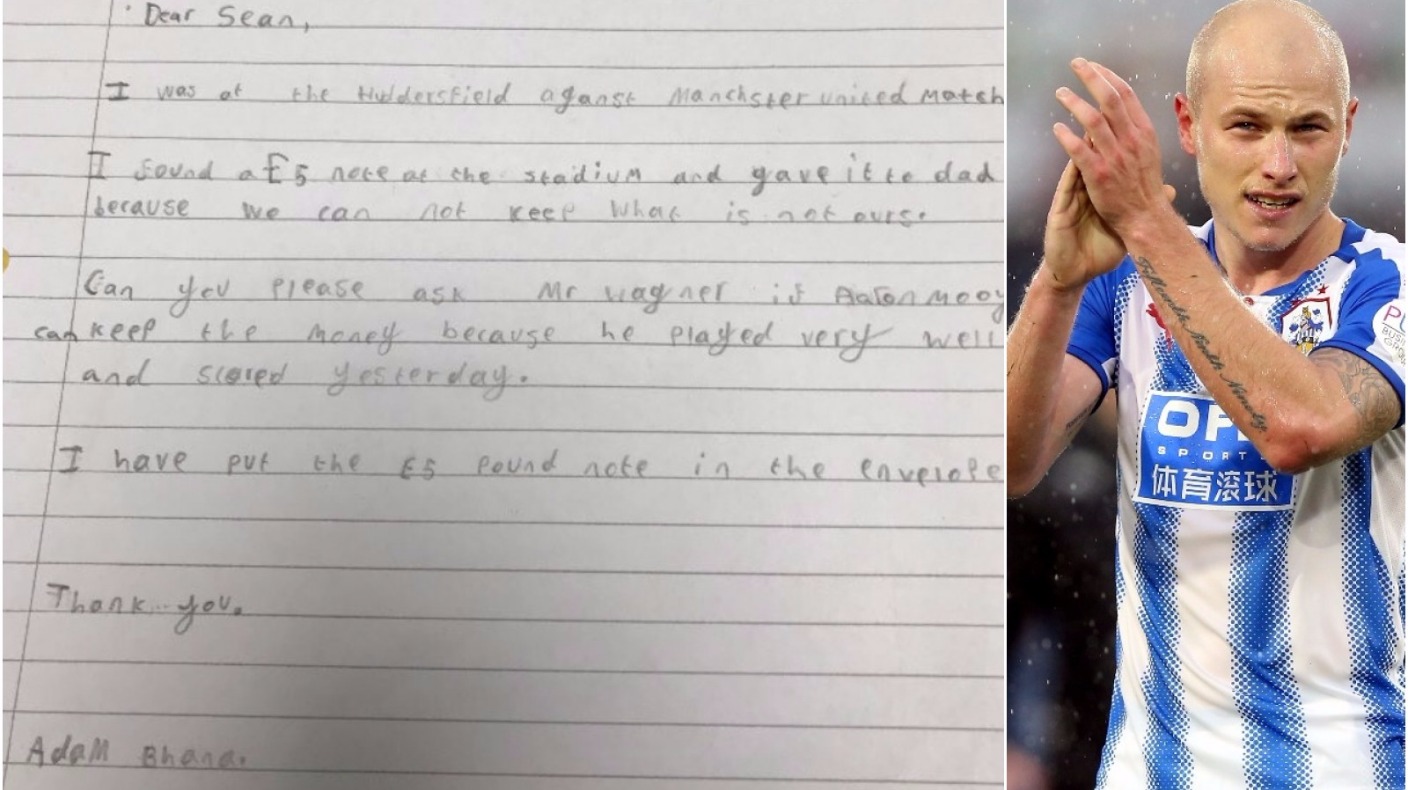 Dear Sean,
I was at the Huddersfield aganst Manchster united Match
I found a £5 note at the stadium and gave it to dad
because we can not keep what is not ours.
Can you please ask Mr Wagner if Aaron mooy
can keep the money because he played very well
and scored yesterday.
I have put the £5 pound note in the envelope
Thank you.
Adam Bhana.
OP
SPORT
体育滚球